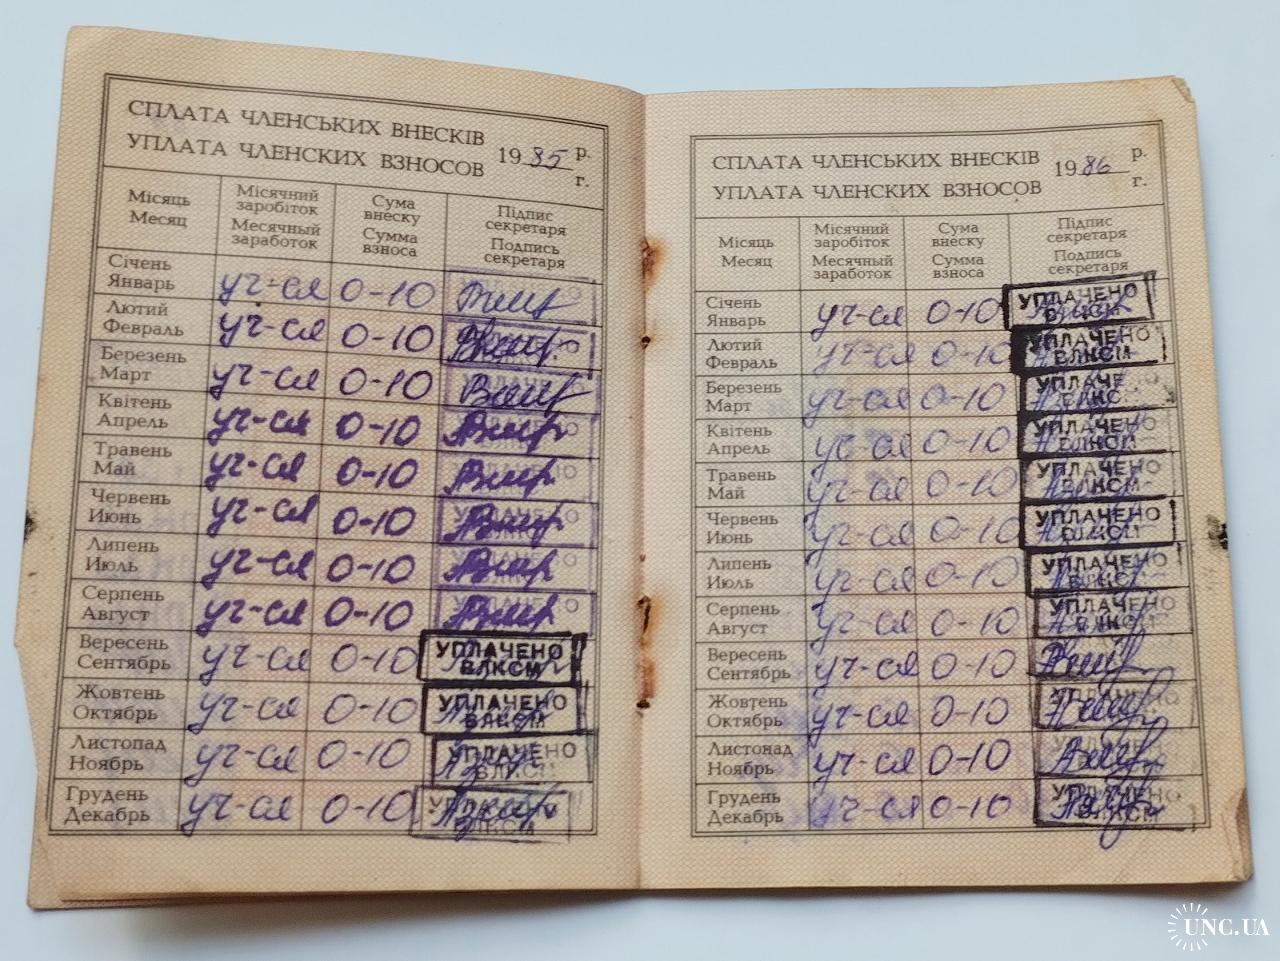 СПЛАТА ЧЛЕНСЬКИХ ВНЕСКІВ
УПЛАТА ЧЛЕНСКИХ ВЗНОСОВ
1985 р.
г.
Місяць
Месяц
Місячний
заробіток
Месячный
заработок
Сума
внеску
Сумма
взноса
Підпис
секретаря
Подпись
секретаря
Січень
Январь уч-ся 0-10
Лютий
Февраль уч-ся 0-10
Березень
Март уч-ся 0-10
Квітень
Апрель уч-ся 0-10
Травень
Май уч-ся 0-10
Червень
Июнь уч-ся 0-10
Липень
Июль уч-ся 0-10
Серпень
Август уч-ся 0-10
Вересень
Сентябрь уч-ся 0-10 УПЛАЧЕНО
ВЛКСМ
Жовтень
Октябрь уч-ся 0-10 УПЛАЧЕНО
ВЛКСМ
Листопад
Ноябрь уч-ся 0-10 УПЛАЧЕНО
ВЛКСМ
Грудень
Декабрь уч-ся 0-10 УПЛАЧЕНО
ВЛКСМ
СПЛАТА ЧЛЕНСЬКИХ ВНЕСКІВ
УПЛАТА ЧЛЕНСКИХ ВЗНОСОВ
1986 р.
г.
Місяць
Месяц
Місячний
заробіток
Месячный
заработок
Сума
внеску
Сумма
взноса
Підпис
секретаря
Подпись
секретаря
Січень
Январь уч-ся 0-10 УПЛАЧЕНО
ВЛКСМ
Лютий
Февраль уч-ся 0-10 УПЛАЧЕНО
ВЛКСМ
Березень
Март уч-ся 0-10 УПЛАЧЕ
ВЛКС
Квітень
Апрель уч-ся 0-10 УПЛАЧЕНО
ВЛКСМ
Травень
Май уч-ся 0-10 УПЛАЧЕНО
ВЛКСМ
Червень
Июнь уч-ся 0-10 УПЛАЧЕНО
ВЛКСМ
Липень
Июль уч-ся 0-10 УПЛАЧЕНО
ВЛКСМ
Серпень
Август уч-ся 0-10 УПЛАЧЕНО
ВЛКСМ
Вересень
Сентябрь уч-ся 0-10
Жовтень
Октябрь уч-ся 0-10
Листопад
Ноябрь уч-ся 0-10
Грудень
Декабрь уч-ся 0-10 УПЛАЧЕНО
ВЛКСМ
UNC.UA